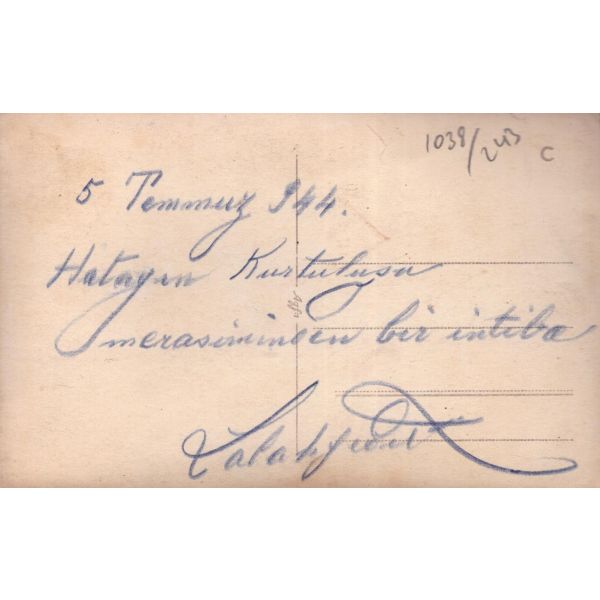 1039/243 C
5 Temmuz 944.
Hatayın Kurtuluşu
merasiminden bir intiba